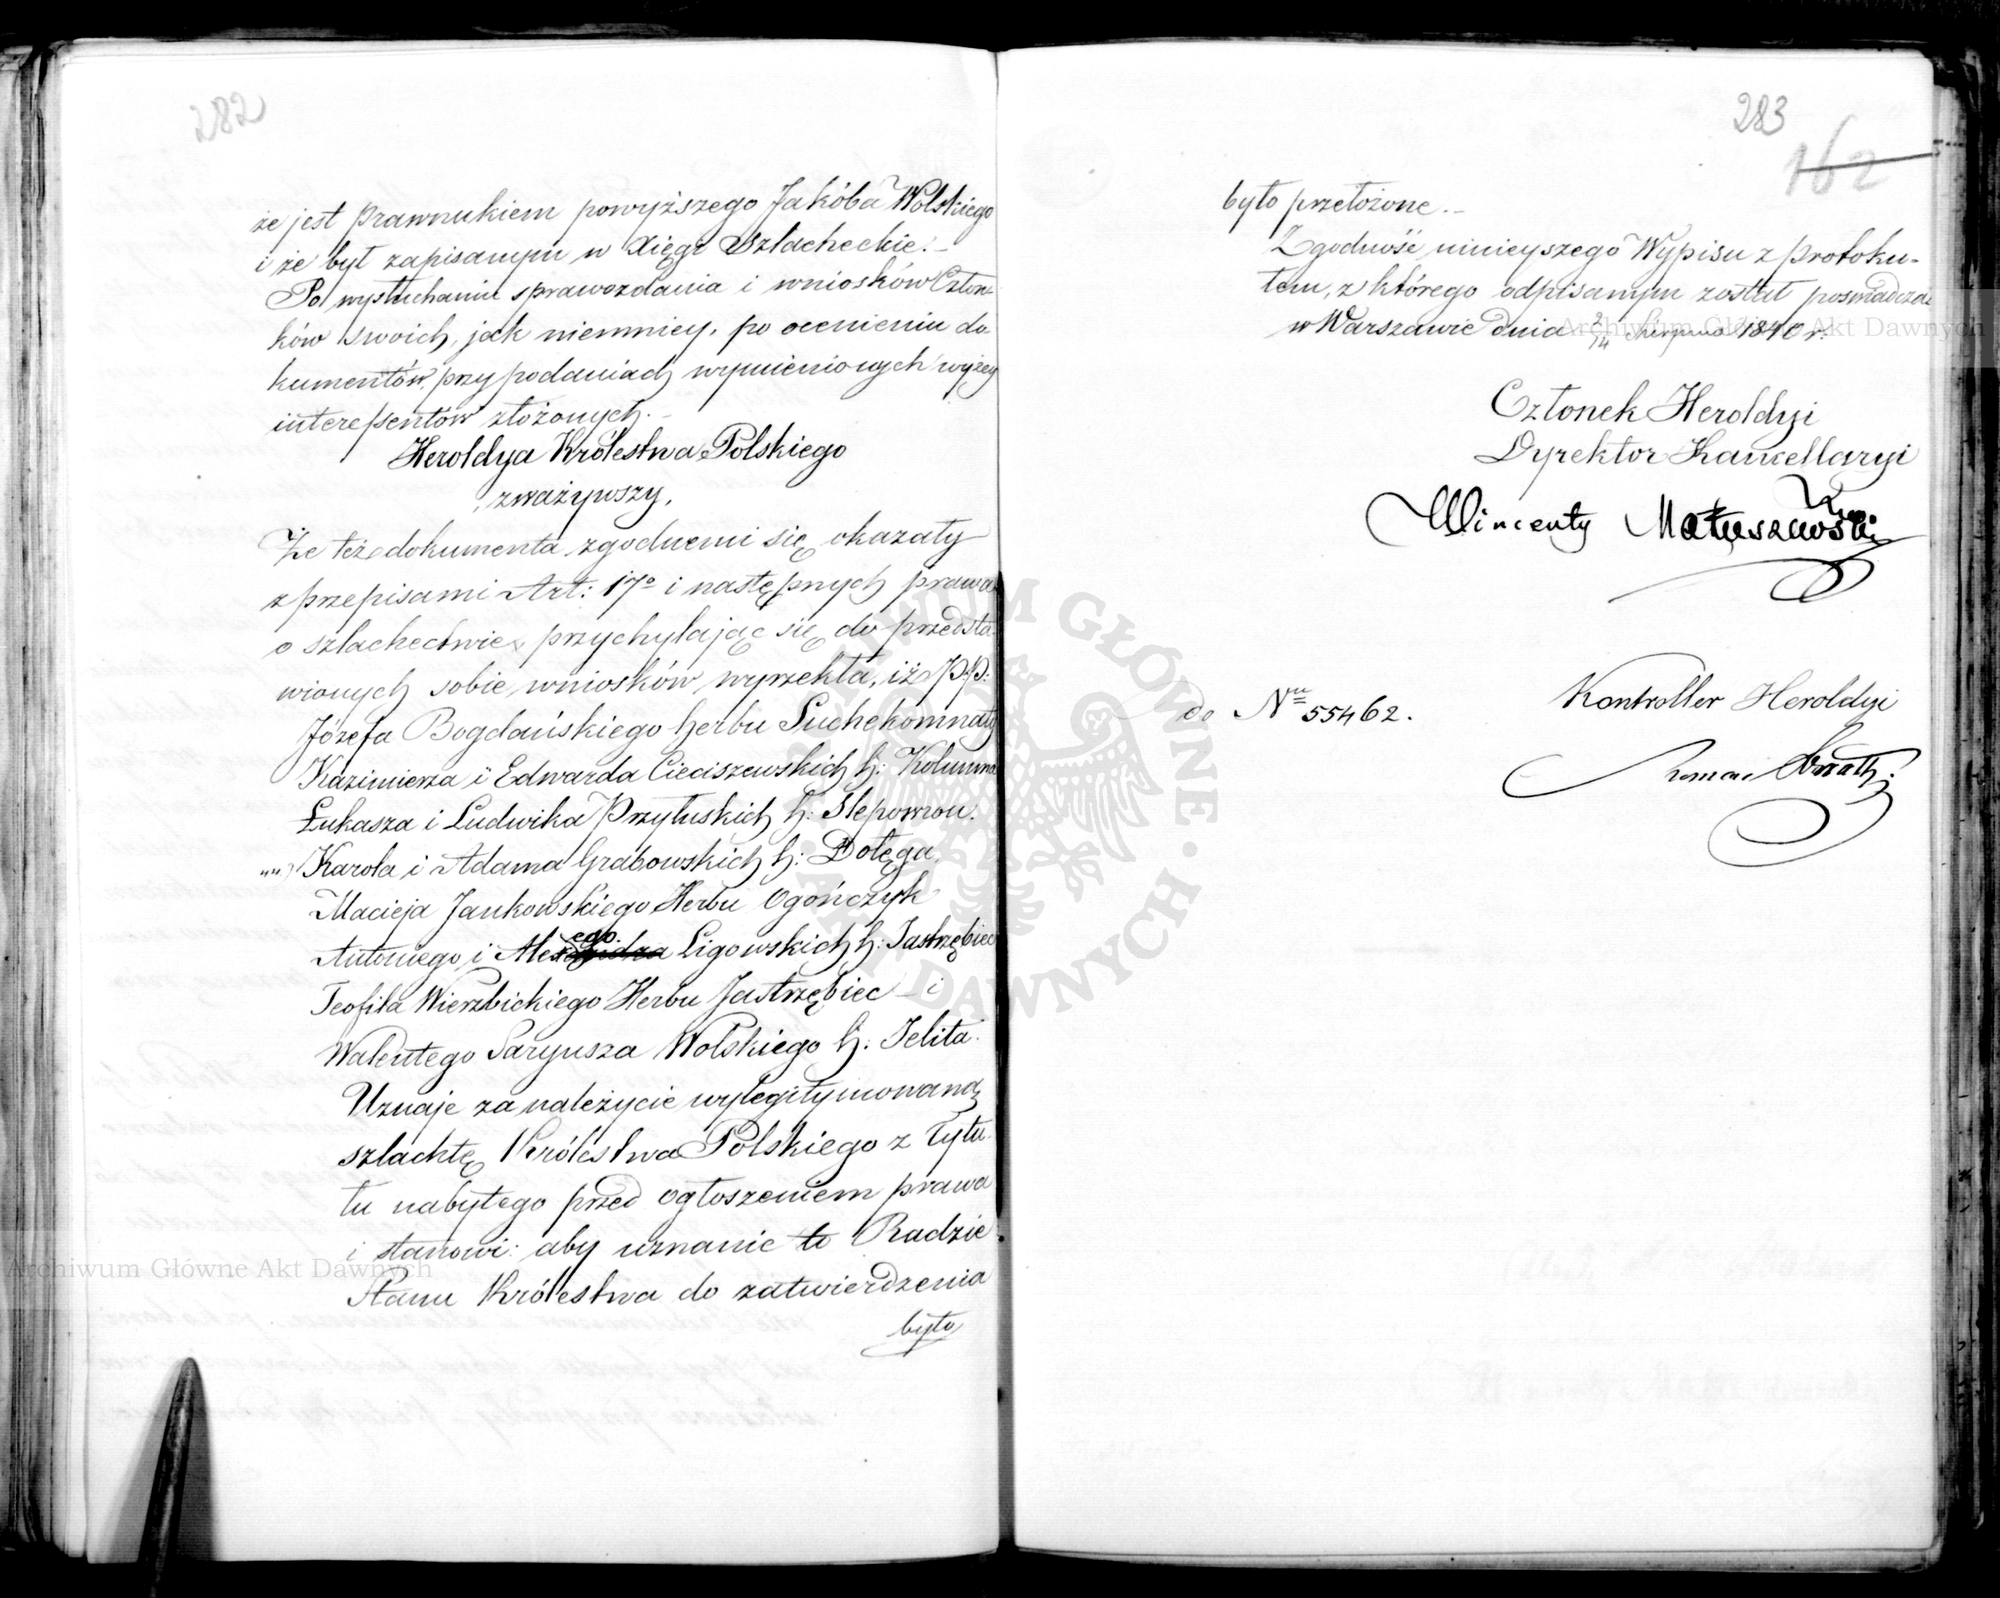 282
że jest prawnukiem powyższego Jakóba Wolskiego
i że był zapisanym w Xięgi Szlacheckie. –
Po wysłuchaniu sprawozdania i wniosków Człon-
ków swoich, jak niemniey, po ocenieniu do
kumentów, przy podaniach wymienionych wyżey
interessentów złożonych. –
Heroldya Królestwa Polskiego
zważywszy,
Że też dokumenta zgodnemi się okazały
z przepisami Art: 17º i następnych prawa
o szlachectwie, przychylając się do przedsta
wionych sobie wniosków, wyrzekła, iż P.P:
Józefa Bogdańskiego herbu Suchekomnaty
Kazimierza i Edwarda Cieciszewskich h: Kolumna
Łukasza i Ludwika Przyłuskich h: Slepowron.
Karola i Adama Grabowskich h: Dołęga,
Macieja Jankowskiego Herbu Ogończyk
Antoniego i Ligowskich h: Jastrzębiec
Teofila Wierzbickiego Herbu Jastrzębiec – i
Walentego Saryusza Wolskiego h: Jelita.
Uznaje za należycie wylegitymowaną
szlachtę Królestwa Polskiego z tytu
łu nabytego przed ogłoszeniem prawa
i stanowi: aby uznanie to Radzie
Stanu Królestwa do zatwierdzenia
było
283
162
było przełożone. –
Zgodność ninieyszego Wypisu z protoku-
łem, z którego odpisanym został poswiadcza
w Warszawie dnia 2/14 Sierpnia 1840 r.
Członek Heroldyi
Dyrektor Kancellaryi
Wincenty Matuszewski
do Nru 55462.
Kontroller Heroldyi
Archiwum Główne Akt Dawnych
Archiwum Główne Akt Dawnych
ARCHIWUM GŁÓWNE · AKT DAWNYCH ·